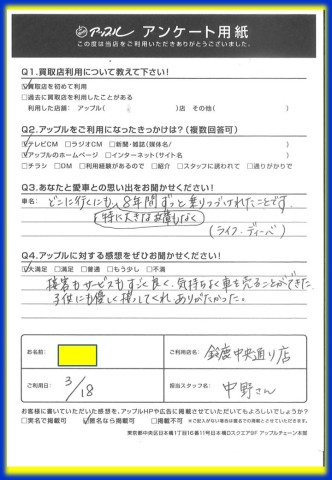 アップル アンケート用紙
この度は当店をご利用いただきありがとうございました。
Q1.買取店利用について教えて下さい!
☑買取店を初めて利用
□過去に買取店を利用したことがある
利用した店舗：アップル( )店 その他( )
Q2.アップルをご利用になったきっかけは?(複数回答可)
☑テレビCM □ラジオCM □新聞・雑誌(媒体名/ )
☑アップルのホームページ □インターネット(サイト名 )
□チラシ □DM □利用経験があるので □紹介 □スタッフに誘われて □通りがかりで
Q3.あなたと愛車との思い出をお聞かせください!
車名: どこに行くにも、8年間ずっと乗りつづけれたことです。
特に大きな故障もなく
(ライフ・ディーバ)
Q4.アップルに対する感想をぜひお聞かせください!
☑大満足 □満足 □普通 □もう少し □不満
接客もサービスもすごく良く、気持ちよく車を売ることができた。
子供にも優しく接してくれ ありがたかった。
お名前:
ご利用店名: 鈴鹿中央通り店
ご利用日: 3/18
担当スタッフ名: 中野さん
お客様に書いていただいた感想を、アップルHPや広告に掲載させていただいてもよろしいでしょうか?
□実名で掲載可 ☑匿名なら掲載可 □掲載不可 ※ご記入がない場合は匿名での掲載とさせていただきます。
東京都中央区日本橋1丁目16番11号日本橋Dスクエア9F アップルチェーン本部